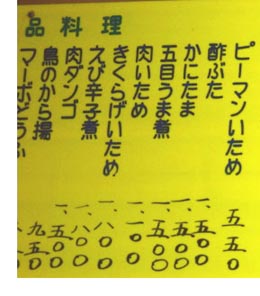 品料理
ピーマンいため 五五〇
酢ぶた 一、五〇〇
かにたま 一、五〇〇
五目うま煮 一、五〇〇
肉いため
きくらげいため 一、八〇〇
えび辛子煮
肉ダンゴ
鳥のから揚 九五〇
マーボどうふ